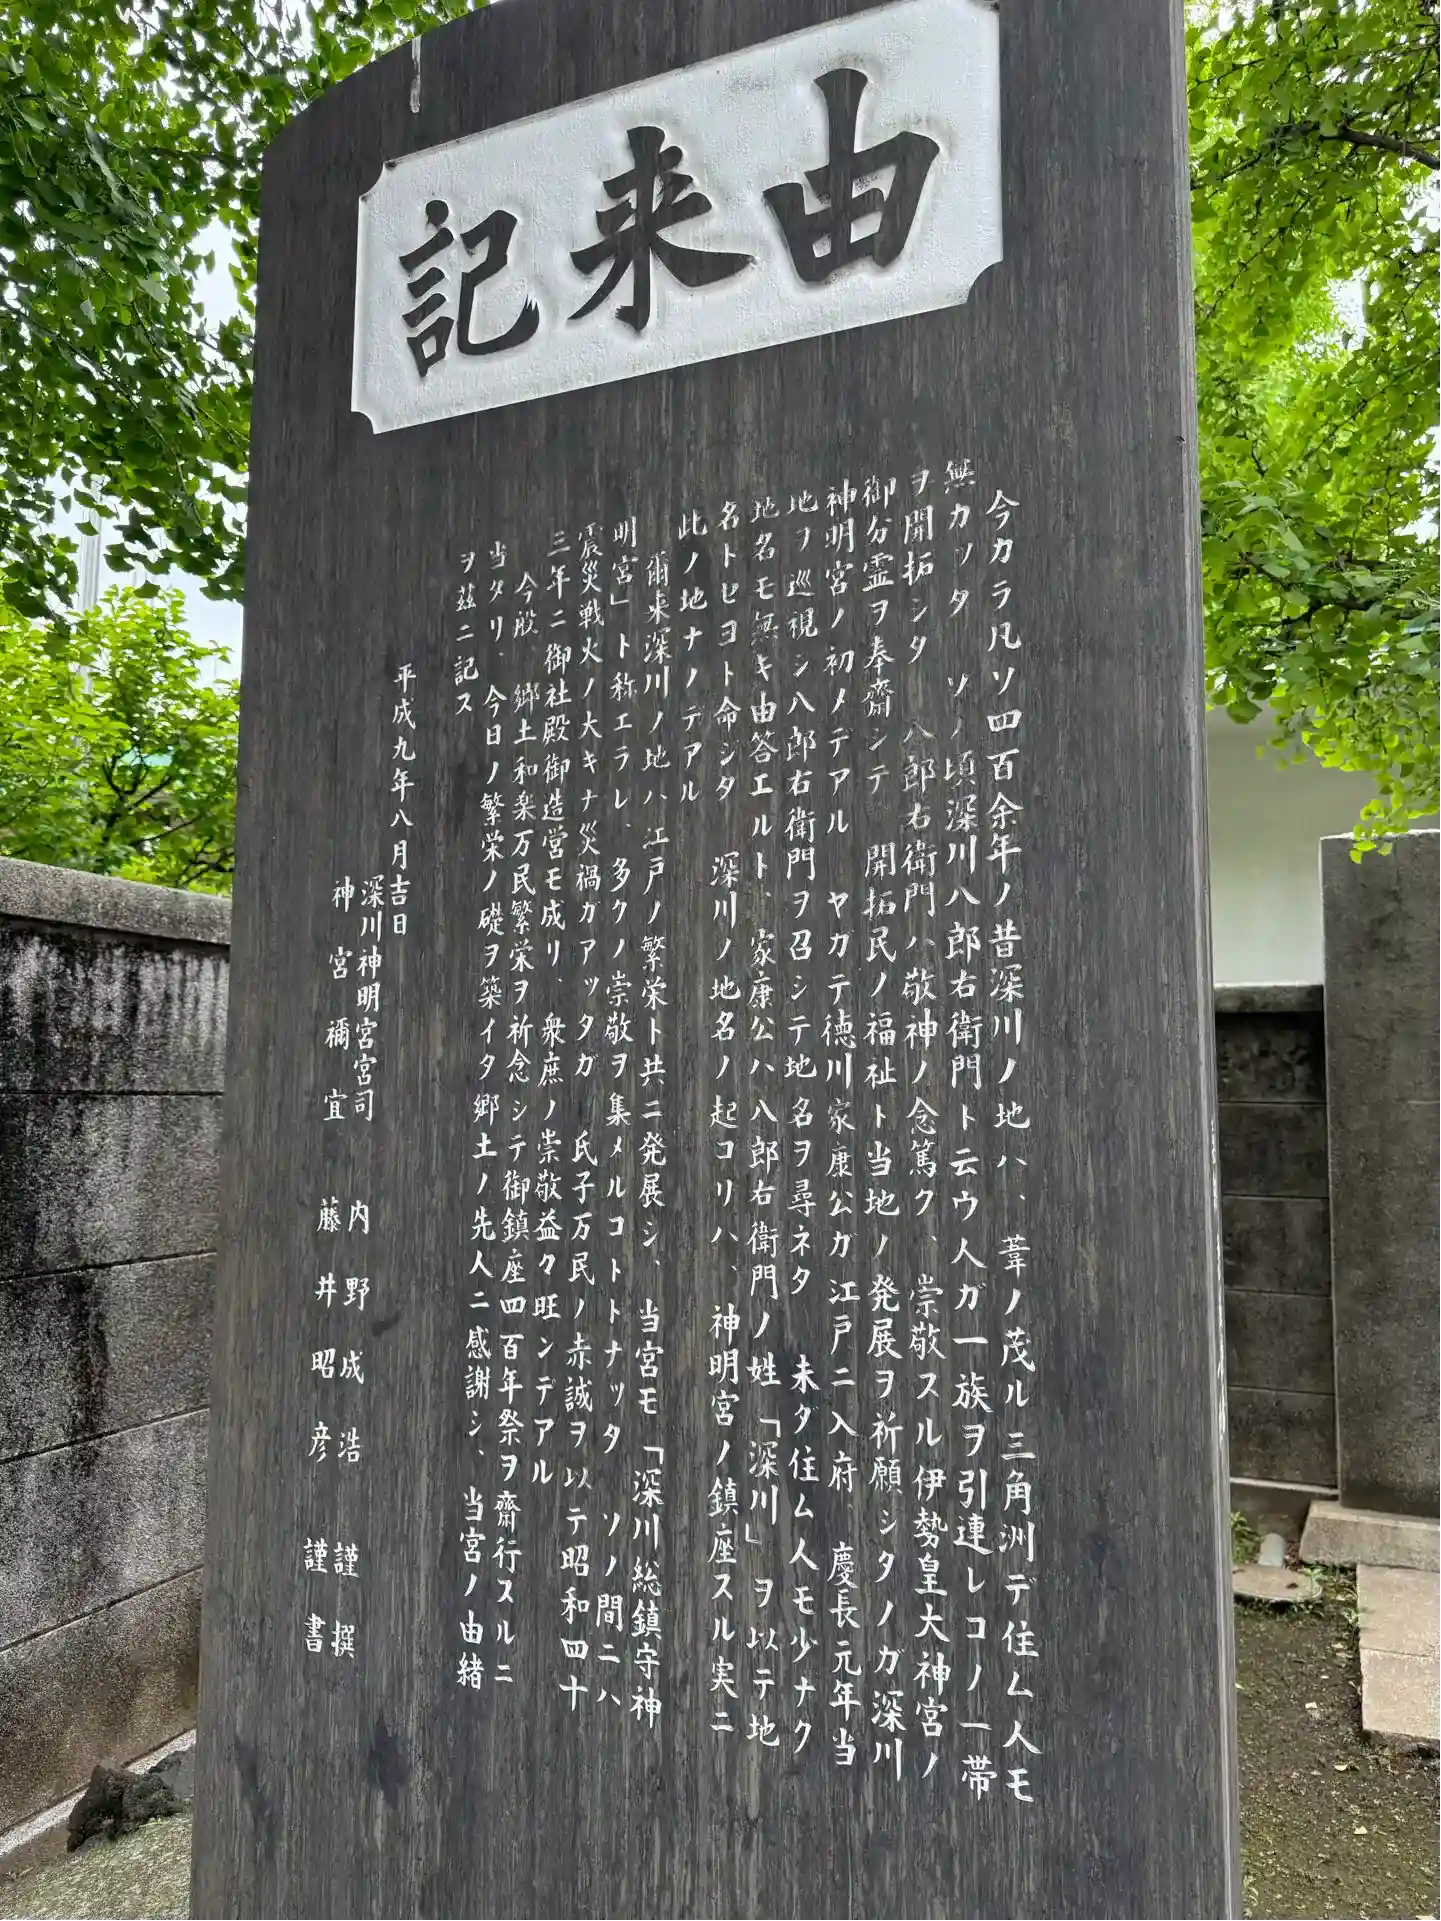 由来記
今カラ凡ソ四百余年ノ昔深川ノ地ハ、葦ノ茂ル三角洲デ住ム人モ
無カッタ　ソノ頃深川八郎右衛門ト云ウ人ガ一族ヲ引連レコノ一帯
ヲ開拓シタ　八郎右衛門ハ敬神ノ念篤ク、崇敬スル伊勢皇大神宮ノ
御分霊ヲ奉齋シテ　開拓民ノ福祉ト当地ノ発展ヲ祈願シタノガ深川
神明宮ノ初メデアル　ヤガテ徳川家康公ガ江戸ニ入府、慶長元年当
地ヲ巡視シ八郎右衛門ヲ召シテ地名ヲ尋ネタ　未ダ住ム人モ少ナク
地名モ無キ由答エルト、家康公ハ八郎右衛門ノ姓「深川」ヲ以テ地
名トセヨト命ジタ　深川ノ地名ノ起コリハ、神明宮ノ鎮座スル実ニ
此ノ地ナノデアル
爾来深川ノ地ハ江戸ノ繁栄ト共ニ発展シ、当宮モ「深川総鎮守神
明宮」ト称エラレ、多クノ崇敬ヲ集メルコトトナッタ　ソノ間ニハ
震災戦火ノ大キナ災禍ガアッタガ　氏子万民ノ赤誠ヲ以テ昭和四十
三年ニ御社殿御造営モ成リ、衆庶ノ崇敬益々旺ンデアル
今般、郷土和楽万民繁栄ヲ祈念シテ御鎮座四百年祭ヲ齋行スルニ
当タリ、今日ノ繁栄ノ礎ヲ築イタ郷土ノ先人ニ感謝シ、当宮ノ由緒
ヲ茲ニ記ス
平成九年八月吉日
深川神明宮宮司　内野成浩　謹撰
神宮禰宜　藤井昭彦　謹書